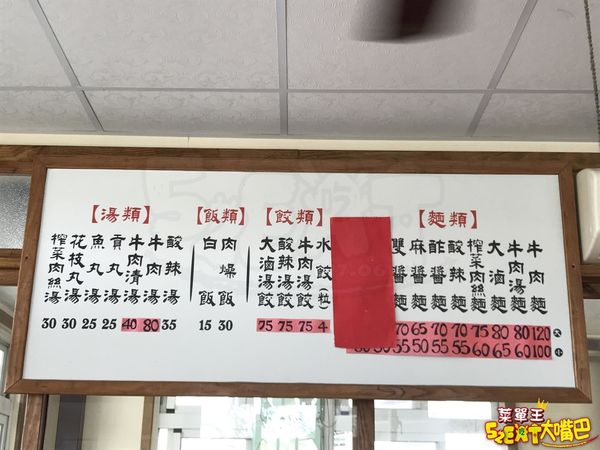 【麵類】
大
小
牛肉麵 120 100
牛肉湯麵 80 60
大滷麵 80 65
榨菜肉絲麵 75 60
酸辣麵 70 55
酢醬麵 70 55
麻醬麵 65 50
雙醬麵 70 55
【餃類】
水餃(粒) 4
牛肉湯餃 75
酸辣湯餃 75
大滷湯餃 75
【飯類】
肉燥飯 30
白飯 15
【湯類】
酸辣湯 35
牛肉湯 80
牛肉清湯 40
貢丸湯 25
魚丸湯 25
花枝丸湯 30
榨菜肉絲湯 30
菜單王
52EAT大嘴巴